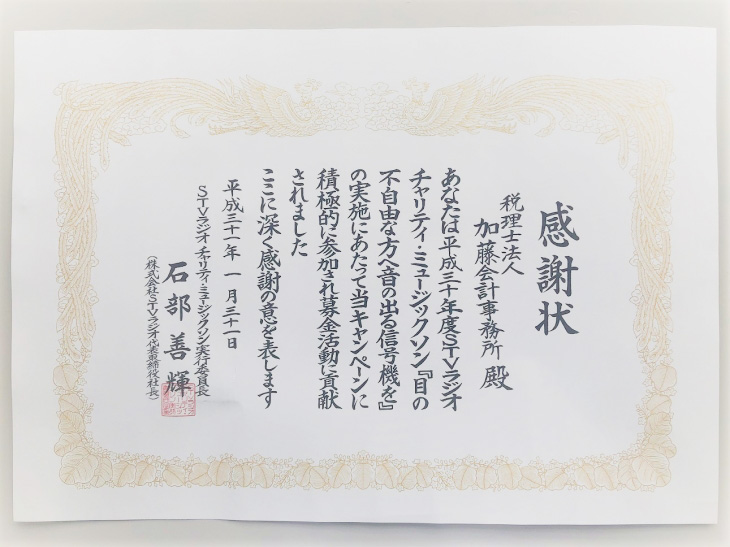 感謝状
税理士法人
加藤会計事務所 殿
あなたは平成三十年度STVラジオ
チャリティ・ミュージックソン『目の
不自由な方へ音の出る信号機を』
の実施にあたって当キャンペーンに
積極的に参加され募金活動に貢献
されました
ここに深く感謝の意を表します
平成三十一年 一月三十一日
STVラジオ チャリティ・ミュージックソン実行委員長
石部善輝
(株式会社STVラジオ代表取締役社長)